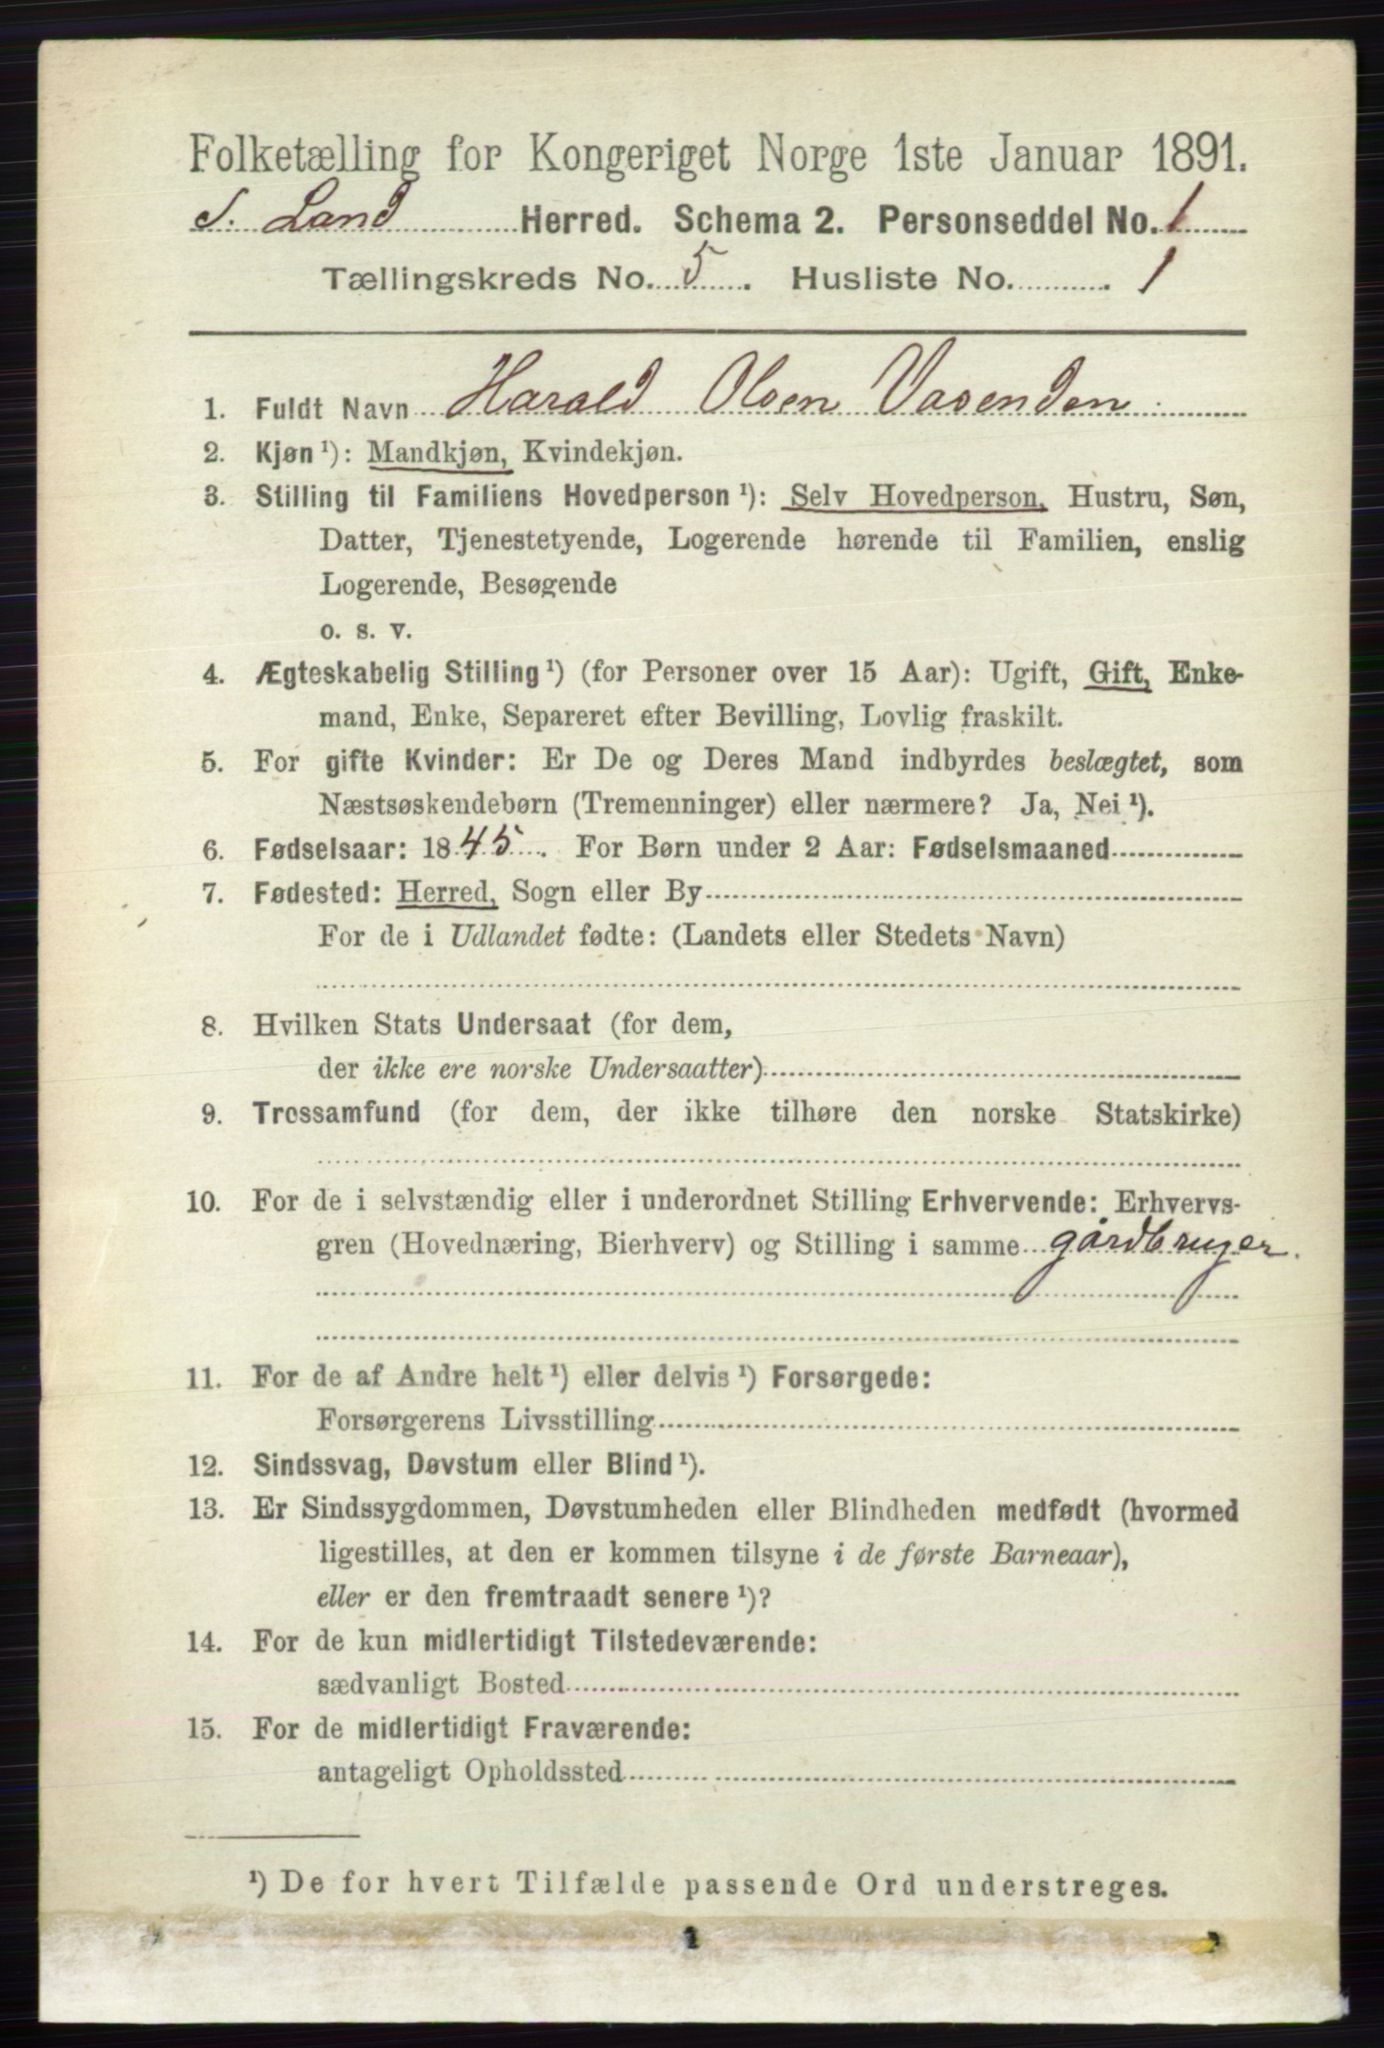 Folketælling for Kongeriget Norge 1ste Januar 1891.
S. Land Herred. Schema 2. Personseddel No. 1
Tællingskreds No. 5. Husliste No. 1
1. Fuldt Navn Harald Olsen Vasenden
2. Kjøn ¹): Mandkjøn, Kvindekjøn.
3. Stilling til Familiens Hovedperson ¹): Selv Hovedperson, Hustru, Søn,
Datter, Tjenestetyende, Logerende hørende til Familien, enslig
Logerende, Besøgende
o. s. v.
4. Ægteskabelig Stilling ¹) (for Personer over 15 Aar): Ugift, Gift, Enke-
mand, Enke, Separeret efter Bevilling, Lovlig fraskilt.
5. For gifte Kvinder: Er De og Deres Mand indbyrdes beslægtet, som
Næstsøskendebørn (Tremenninger) eller nærmere? Ja, Nei ¹).
6. Fødselsaar: 1845. For Børn under 2 Aar: Fødselsmaaned
7. Fødested: Herred, Sogn eller By
For de i Udlandet fødte: (Landets eller Stedets Navn)
8. Hvilken Stats Undersaat (for dem,
der ikke ere norske Undersaatter)
9. Trossamfund (for dem, der ikke tilhøre den norske Statskirke)
10. For de i selvstændig eller i underordnet Stilling Erhvervende: Erhvervs-
gren (Hovednæring, Bierhverv) og Stilling i samme gårdbruger.
11. For de af Andre helt ¹) eller delvis ¹) Forsørgede:
Forsørgerens Livsstilling
12. Sindssvag, Døvstum eller Blind ¹).
13. Er Sindssygdommen, Døvstumheden eller Blindheden medfødt (hvormed
ligestilles, at den er kommen tilsyne i de første Barneaar),
eller er den fremtraadt senere ¹)?
14. For de kun midlertidigt Tilstedeværende:
sædvanligt Bosted
15. For de midlertidigt Fraværende:
antageligt Opholdssted
¹) De for hvert Tilfælde passende Ord understreges.